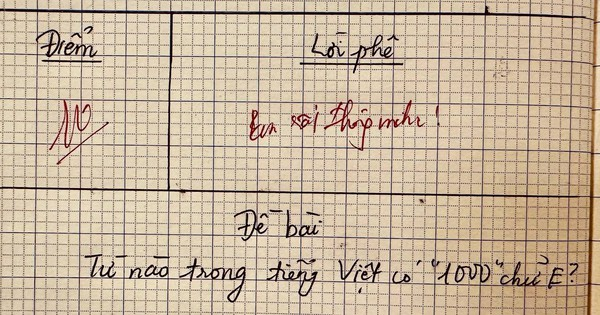 Điểm
Lời phê
10
Em rất thông minh!
Đề bài
Từ nào trong tiếng Việt có "1000" chữ E?